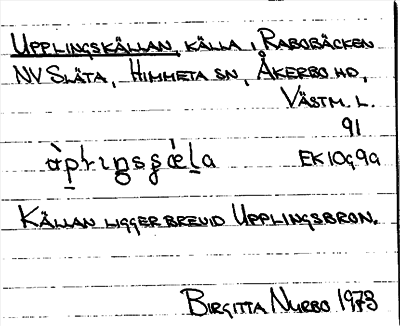 UPPLINGSKÄLLAN, KÄLLA I RABOBÄCKEN
NV SLÄTA, HIMMETA SN, ÅKERBO HD,
VÄSTM. L.
91
EK 10G 9a
KÄLLAN LIGGER BREVID UPPLINGSBRON.
BIRGITTA NURBO 1973